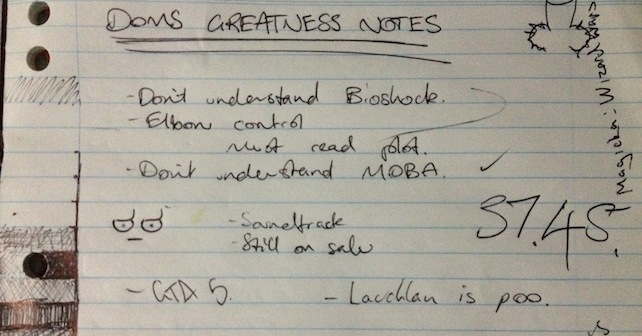 DOMS GREATNESS NOTES
- Don't understand Bioshock.
- Elbow control
Must read plot.
- Don't understand MOBA.
- Soundtrack
- Still on sale
37.48
- GTA 5.
- Lachlan is poo.
Magicka: Wizard Wars